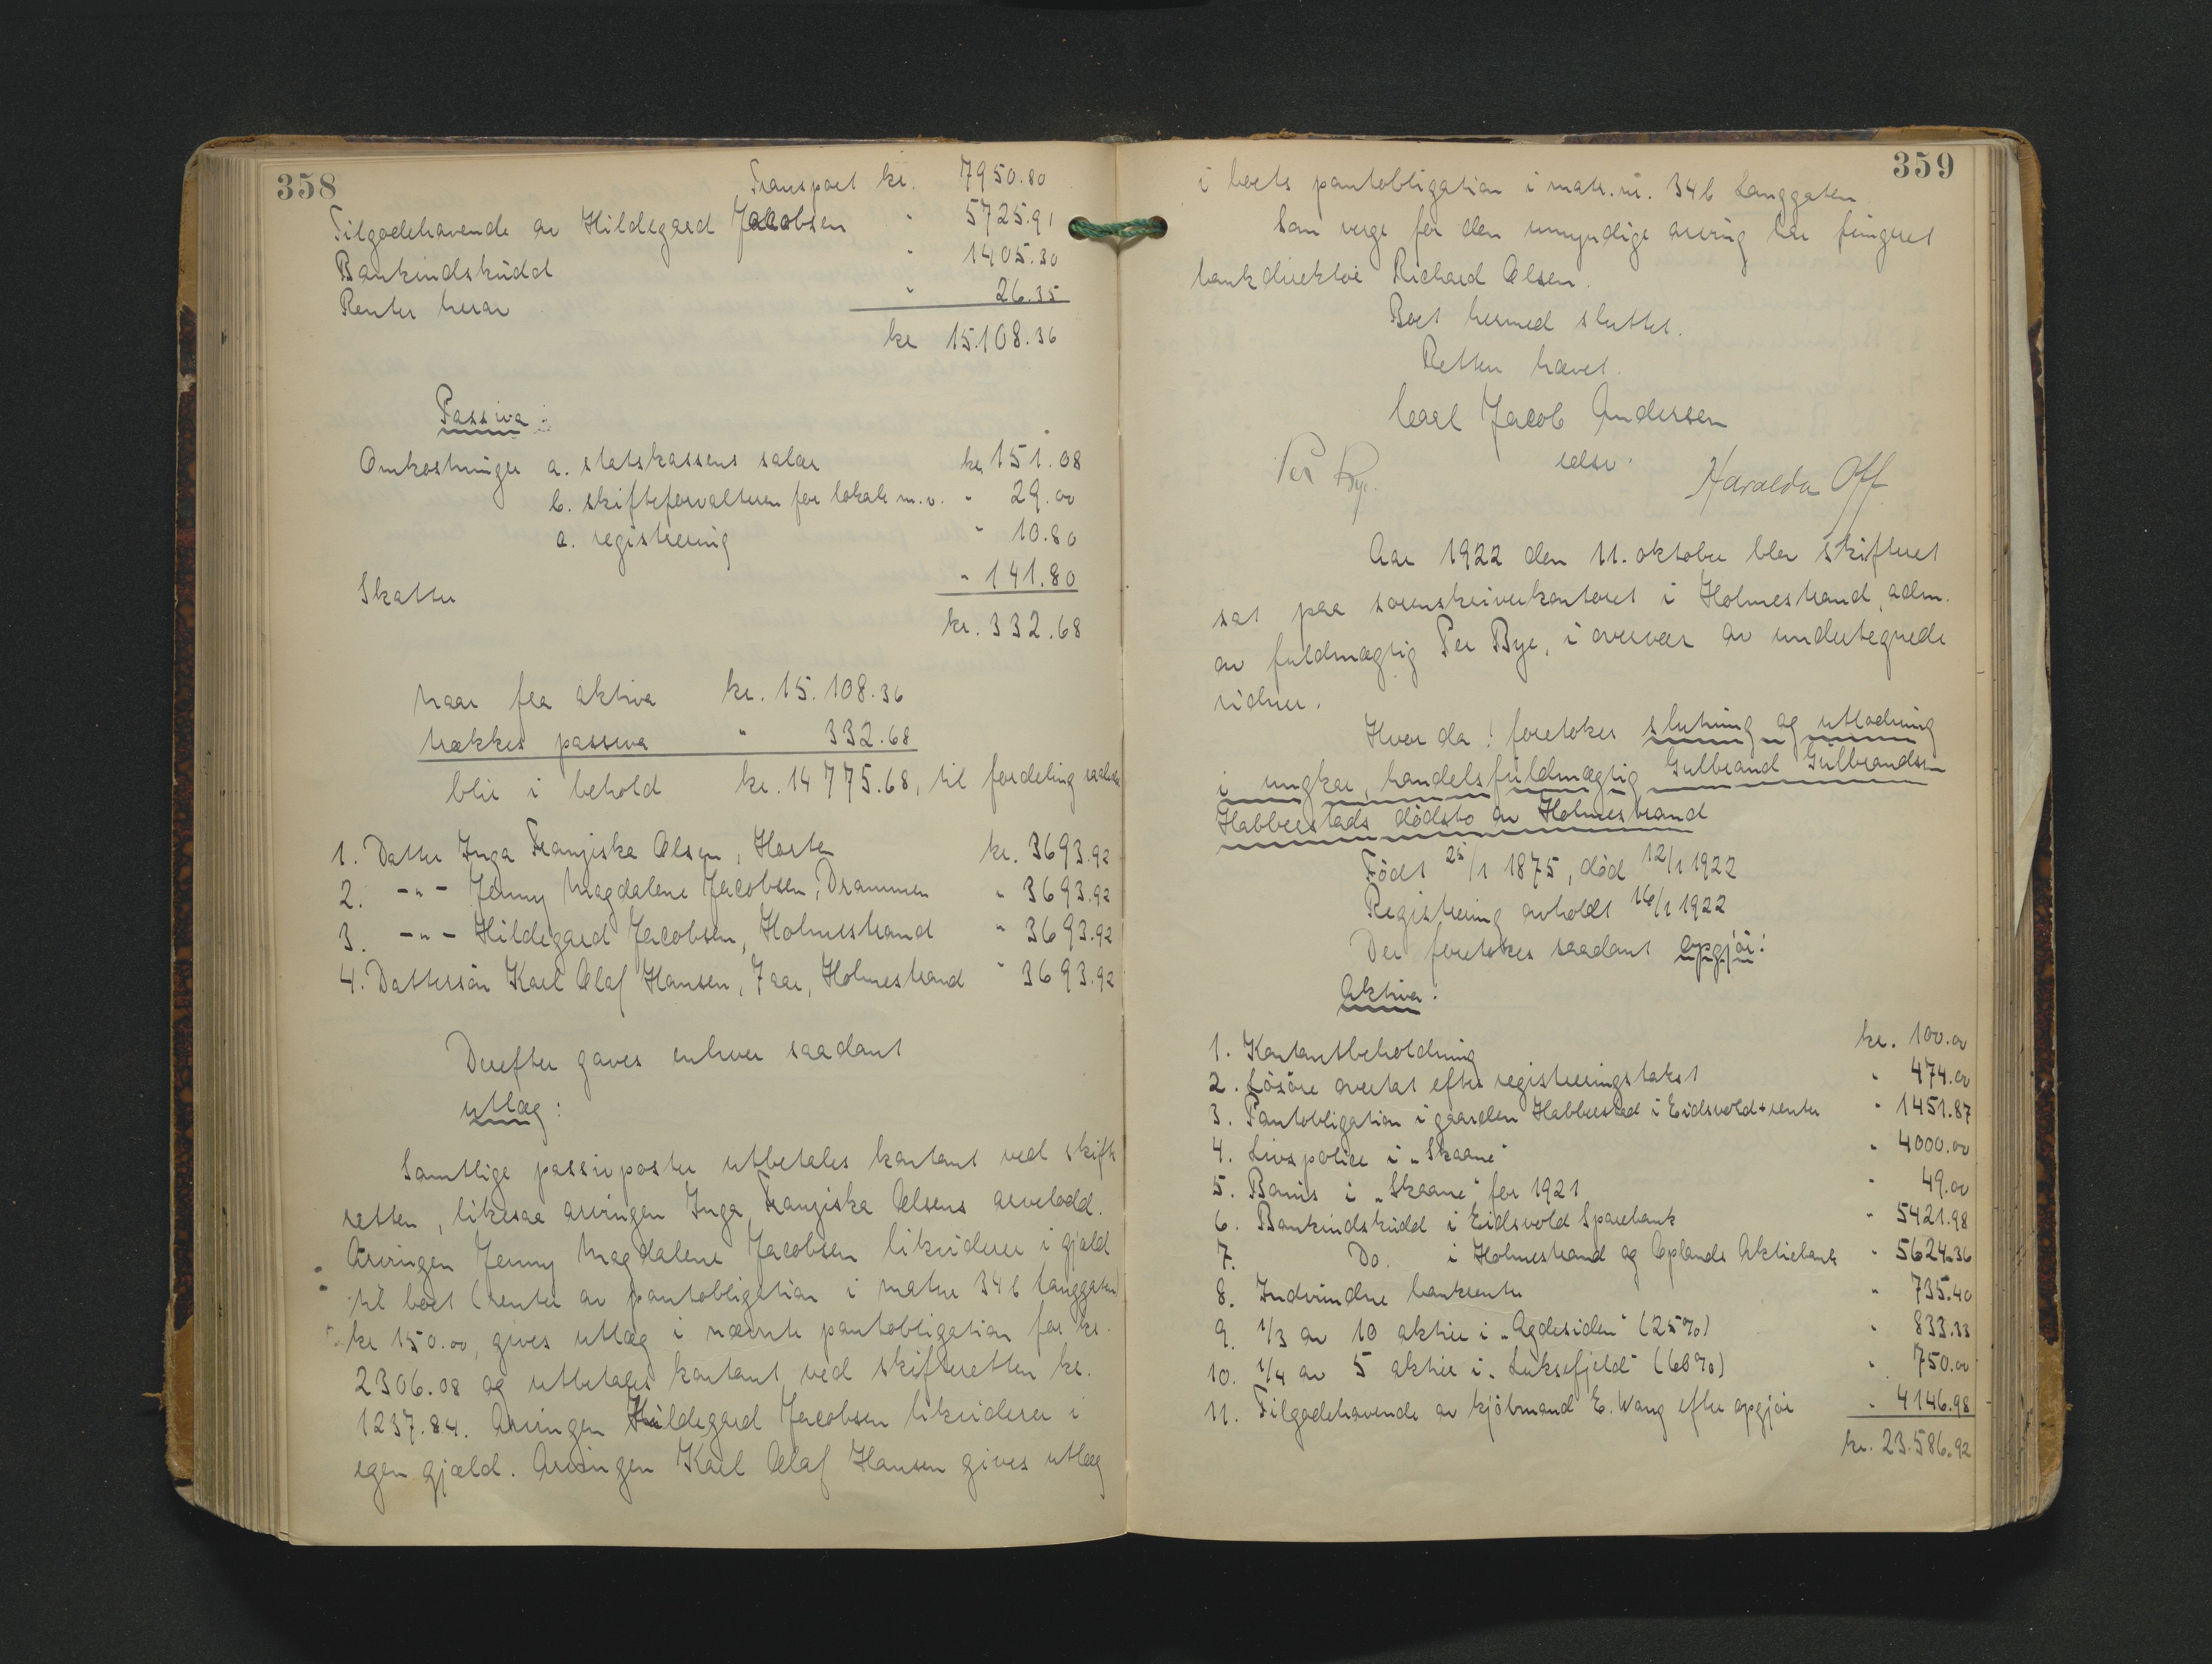 358
Transport kr. 7950.80
Tilgodehavende av Hildegard Jacobsen " 5725.91
Bankindskudd " 1405.30
Renter herav " 26.35
kr 15.108.36
Passiva:
Omkostninger a. statskassens salær kr 151.08
b. skifteforvalteren for lokale m.v. " 29.00
c. registrering " 10.80
Skatter " 141.80
kr. 332.68
Naar fra aktiva kr. 15.108.36
trækkes passiva " 332.68
blir i behold kr. 14775.68, til fordeling saaledes
1. Datter Inga Franziska Olsen, Horten kr. 3693.92
2. -"- Jenny Magdalene Jacobsen, Drammen " 3693.92
3. -"- Hildegard Jacobsen, Holmestrand " 3693.92
4. Dattersön Karl Olaf Hansen, 7 aar, Holmestrand " 3693.92
Derefter gaves enhver saadant
utlæg:
Samtlige passivposter utbetales kontant ved skifte
retten, likesaa arvingen Inga Franziska Olsens arvelodd.
Arvingen Jenny Magdalene Jacobsen likviderer i gjæld
til boet (renter av pantobligation i matnr 34b Langgaten)
kr 150.00, gives utlæg i nævnte pantobligation for kr.
2306.08 og utbetales kontant ved skifteretten kr.
1237.84. Arvingen Hildegard Jacobsen likviderer i
egen gjæld. Arvingen Karl Olaf Hansen gives utlæg
359
i boets pantobligation i matr. nr. 34b Langgaten.
Som verge for den umyndige arving har fungert
bankdirektör Richard Olsen.
Boet hermed sluttet.
Retten hævet.
Carl Jacob Andersen
Per Bye. Haralda Off
Aar 1922 den 11. oktober blev skifteret
sat paa sorenskriverkontoret i Holmestrand, adm.
av fuldmægtig Per Bye, i overvær av undertegnede
vidner.
Hvor da! foretokes slutning og utlodning
i ungkar, handelsfuldmægtig Gulbrand Gulbrandsen
Habberstads dödsbo av Holmestrand
Födt 25/1 1875, död 12/1 1922
Registrering avholdt 16/1 1922
Der foretokes saadant opgjör:
Aktiva:
1. Kontantbeholdning kr. 100.00
2. Lösöre overtat efter registreringstakst " 474.00
3. Pantobligation i gaarden Habberstad i Eidsvold + renter " 1451.87
4. Livspolice i „Skaane" " 4000.00
5. Bonus i „Skaane" for 1921 " 49.00
6. Bankindskudd i Eidsvold Sparebank " 5421.98
7. Do. i Holmestrand og Oplands Aktiebank " 5624.36
8. Indvundne bankrenter " 735.40
9. 1/3 av 10 aktier i „Agdesiden" (25%) " 833.33
10. 1/4 av 5 aktier i „Luksefjeld" (60%) " 750.00
11. Tilgodehavende av kjöbmand E. Wang efter opgjör " 4146.98
kr. 23.586.92